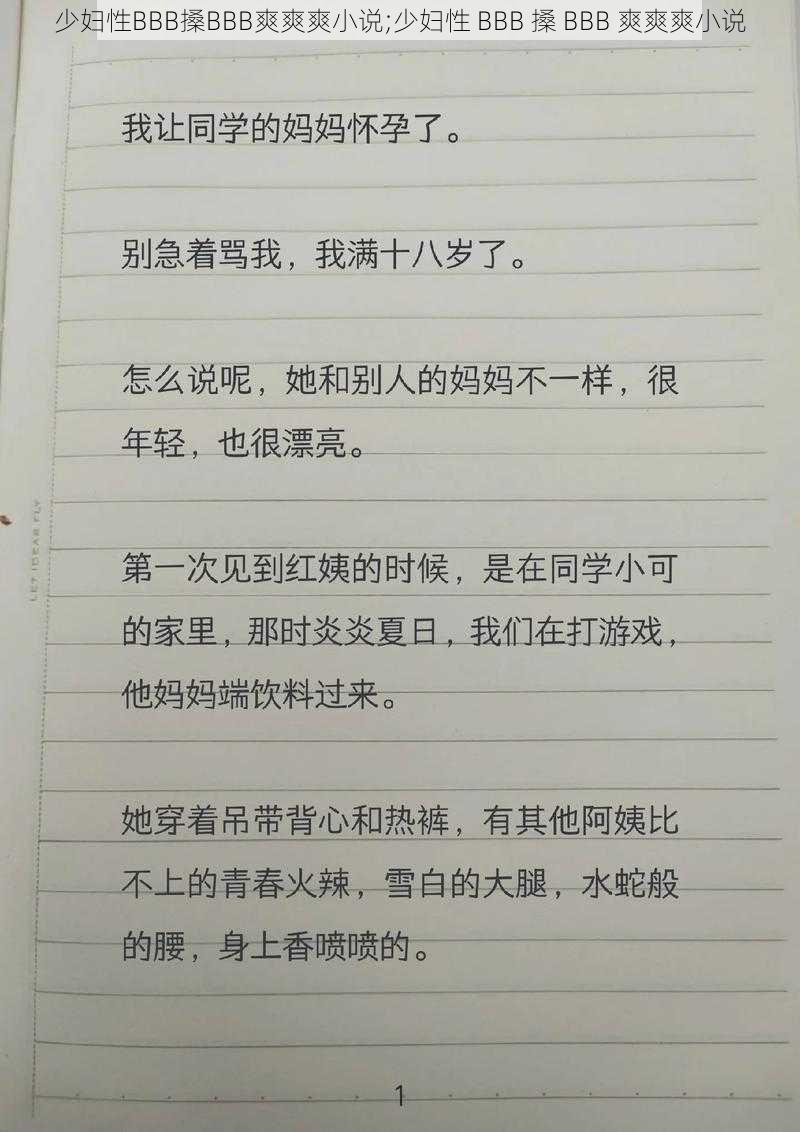 少妇性BBB搡BBB爽爽爽小说;少妇性 BBB 搡 BBB 爽爽爽小说
我让同学的妈妈怀孕了。
别急着骂我，我满十八岁了。
怎么说呢，她和别人的妈妈不一样，很
年轻，也很漂亮。
第一次见到红姨的时候，是在同学小可
的家里，那时炎炎夏日，我们在打游戏，
他妈妈端饮料过来。
她穿着吊带背心和热裤，有其他阿姨比
不上的青春火辣，雪白的大腿，水蛇般
的腰，身上香喷喷的。
LET IDEAS FLY
1